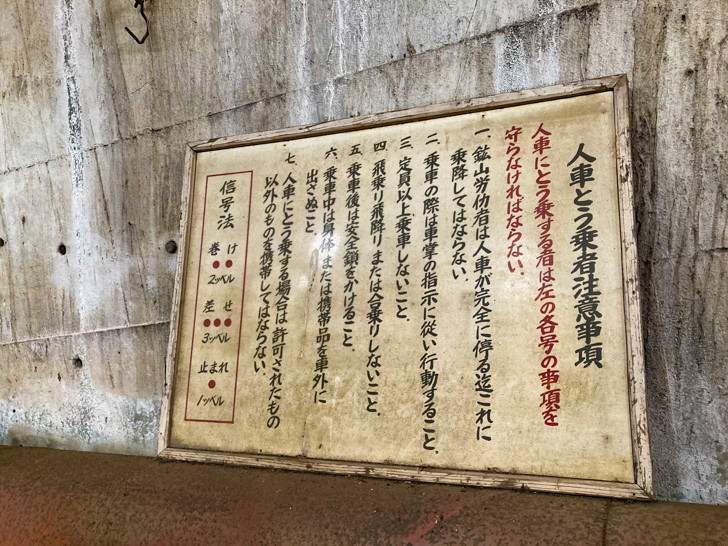 人車とう乗者注意事項
人車にとう乗する者は左の各号の事項を
守らなければならない.
一. 鉱山労仂者は人車が完全に停る迄これに
乗降してはならない.
二. 乗車の際は車掌の指示に従い行動すること.
三. 定員以上乗車しないこと.
四. 飛乗り飛降りまたは合乗りしないこと.
五. 乗車後は安全鎖をかけること.
六. 乗車中は身体または携帯品を車外に
出さぬこと.
七. 人車にとう乗する場合は許可されたもの
以外のものを携帯してはならない.
信号法
巻け
2ッベル
差せ
3ッベル
止まれ
1ッベル